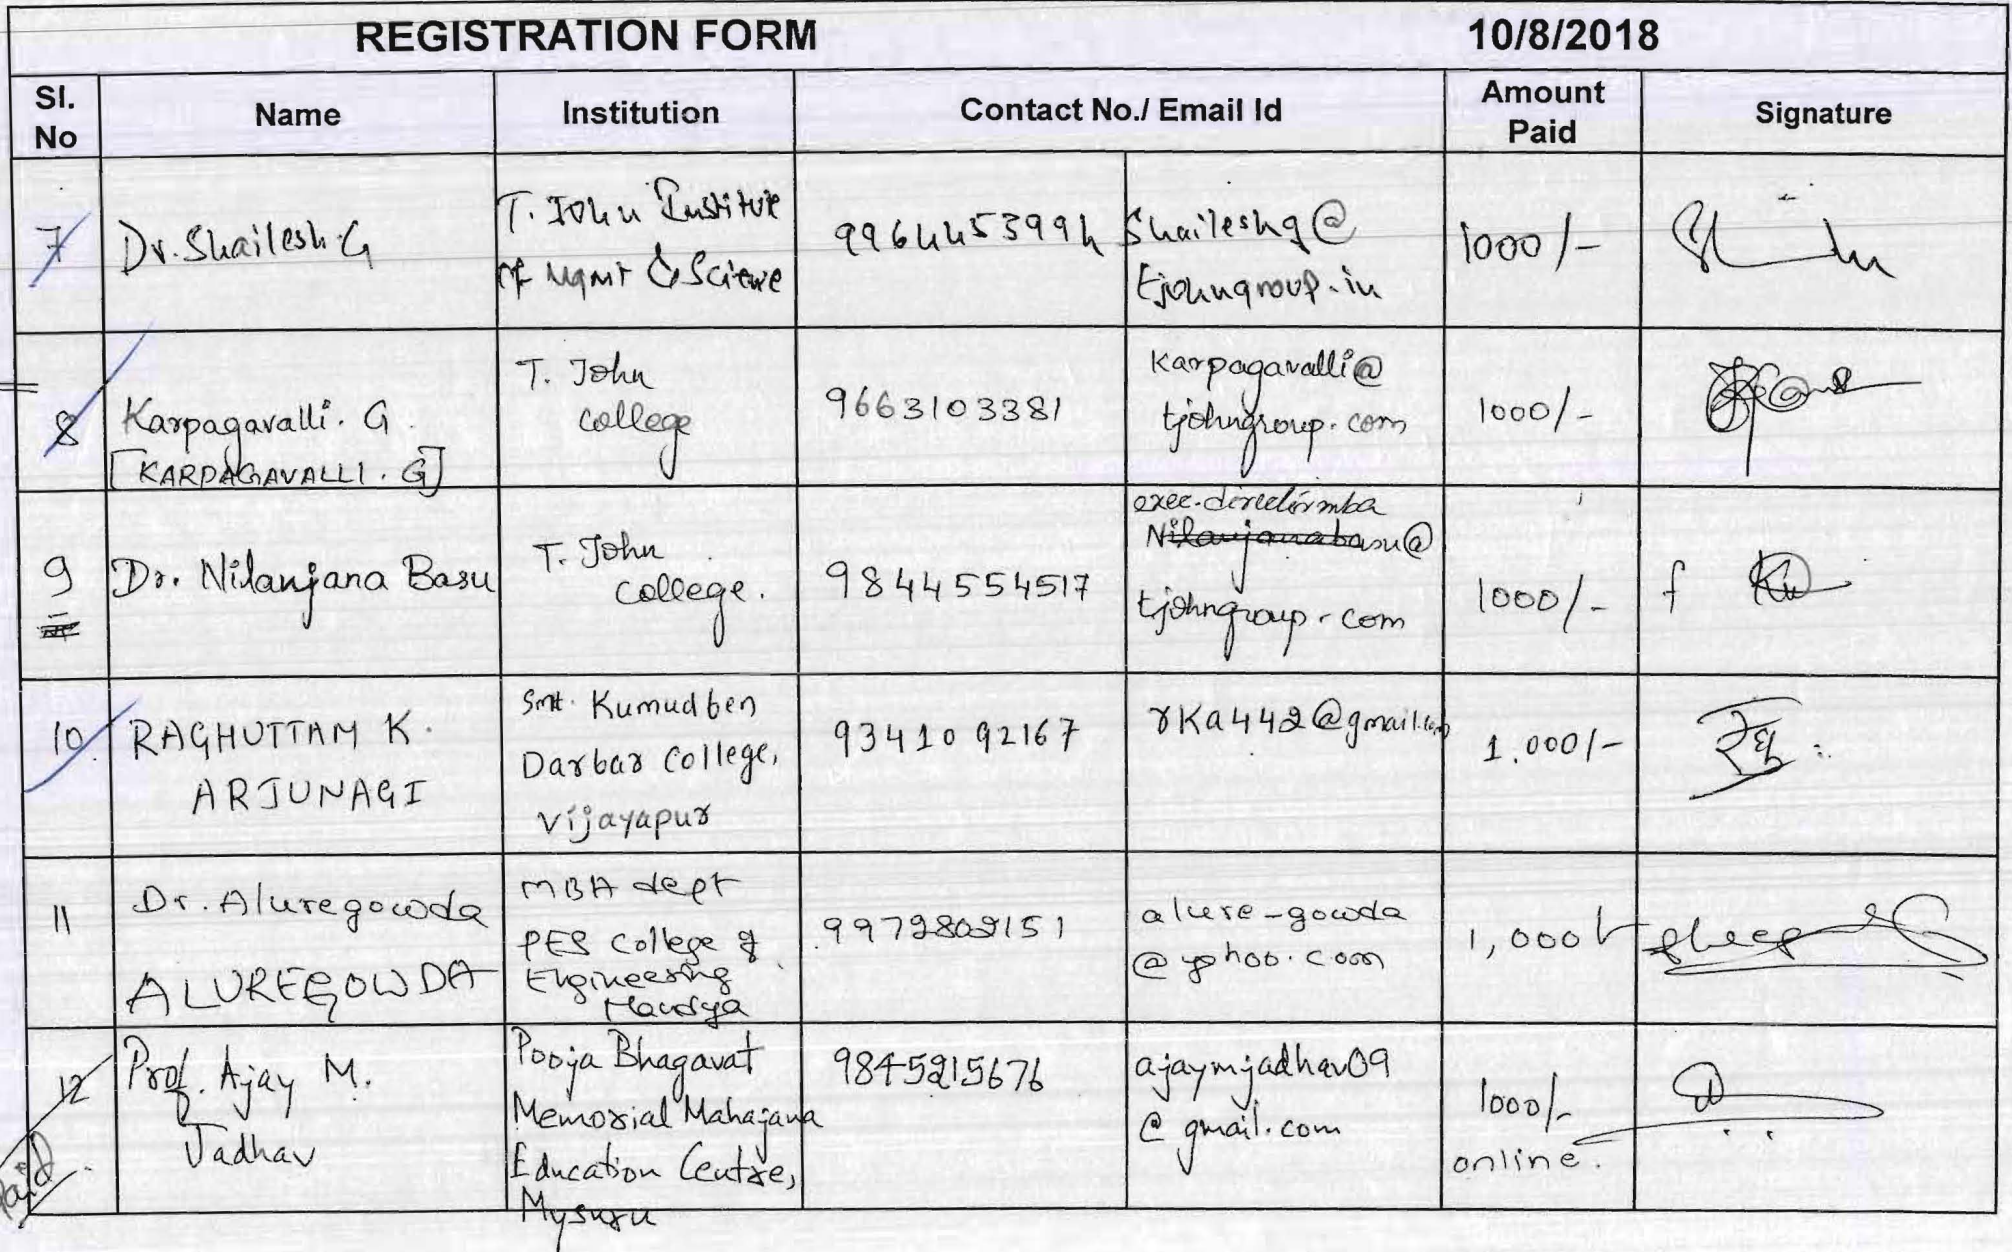 REGISTRATION FORM 10/8/2018
Sl. No Name Institution Contact No./ Email Id Amount Paid Signature
7 Dr. Shailesh. G
T. John Institute
of Mgmt & Science
9964453994
Shaileshg@
tjohngroup.in
1000/-
8 Karpagavalli. G
[KARPAGAVALLI. G]
T. John
college
9663103381
karpagavalli@
tjohngroup.com
1000/-
9 Dr. Nilanjana Basu
T. John
college.
9844554517
exec.directormba
Nilanjanabasu@
tjohngroup.com
1000/-
10 RAGHUTTAM K.
ARJUNAGI
Smt. Kumudben
Darbar College,
Vijayapur
9341092167
rka442@gmail.com
1.000/-
11 Dr. Aluregowda
ALUREGOWDA
MBA dept
PES College of
Engineering
Mandya
9972802151
alure-gowda
@yahoo.com
1,000/-
12 Prof. Ajay M.
Jadhav
Pooja Bhagavat
Memorial Mahajana
Education Centre,
Mysuru
9845215676
ajaymjadhav09
@gmail.com
1000/-
online.
Paid